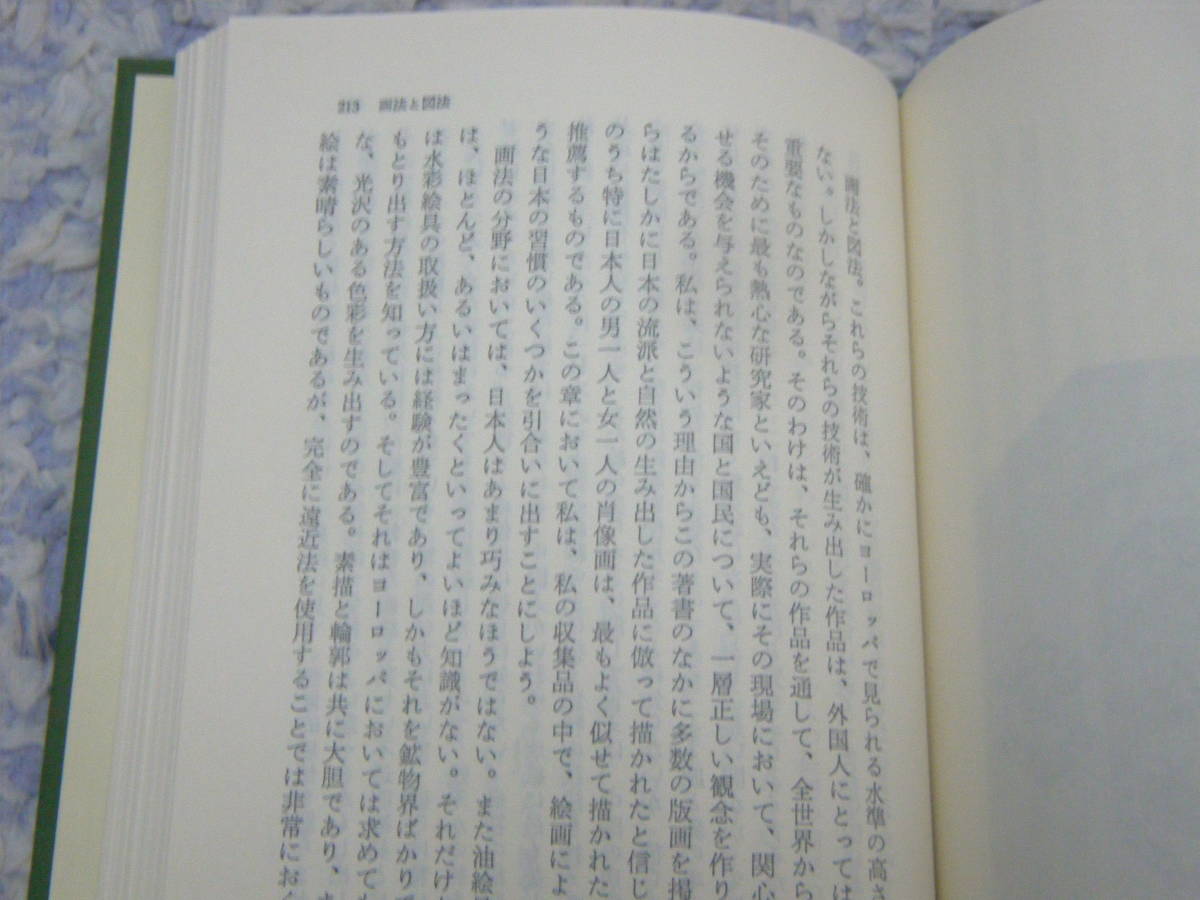 213 画法と図法
画法と図法。これらの技術は、確かにヨーロッパで見られる水準の高さ
ない。しかしながらそれらの技術が生み出した作品は、外国人にとっては
重要なものなのである。そのわけは、それらの作品を通して、全世界から
そのために最も熱心な研究家といえども、実際にその現場において、関心
せる機会を与えられないような国と国民について、一層正しい観念を作り
るからである。私は、こういう理由からこの著書のなかに多数の版画を掲
らはたしかに日本の流派と自然の生み出した作品に倣って描かれたと信じ
のうち特に日本人の男一人と女一人の肖像画は、最もよく似せて描かれた
推薦するものである。この章において私は、私の収集品の中で、絵画によ
うな日本の習慣のいくつかを引合いに出すことにしよう。
画法の分野においては、日本人はあまり巧みなほうではない。また油絵
は、ほとんど、あるいはまったくといってよいほど知識がない。それだけ
は水彩絵具の取扱い方には経験が豊富であり、しかもそれを鉱物界ばかりで
もとり出す方法を知っている。そしてそれはヨーロッパにおいては求めても
な、光沢のある色彩を生み出すのである。素描と輪郭は共に大胆であり、
絵は素晴らしいものであるが、完全に遠近法を使用することでは非常におく